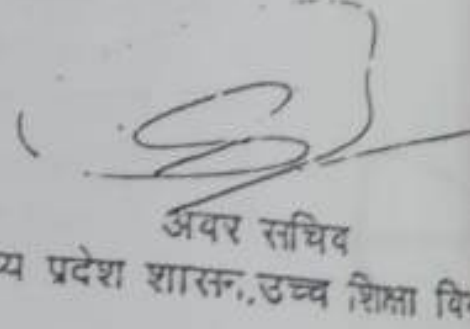 अवर सचिव
य प्रदेश शासन,उच्च शिक्षा वि